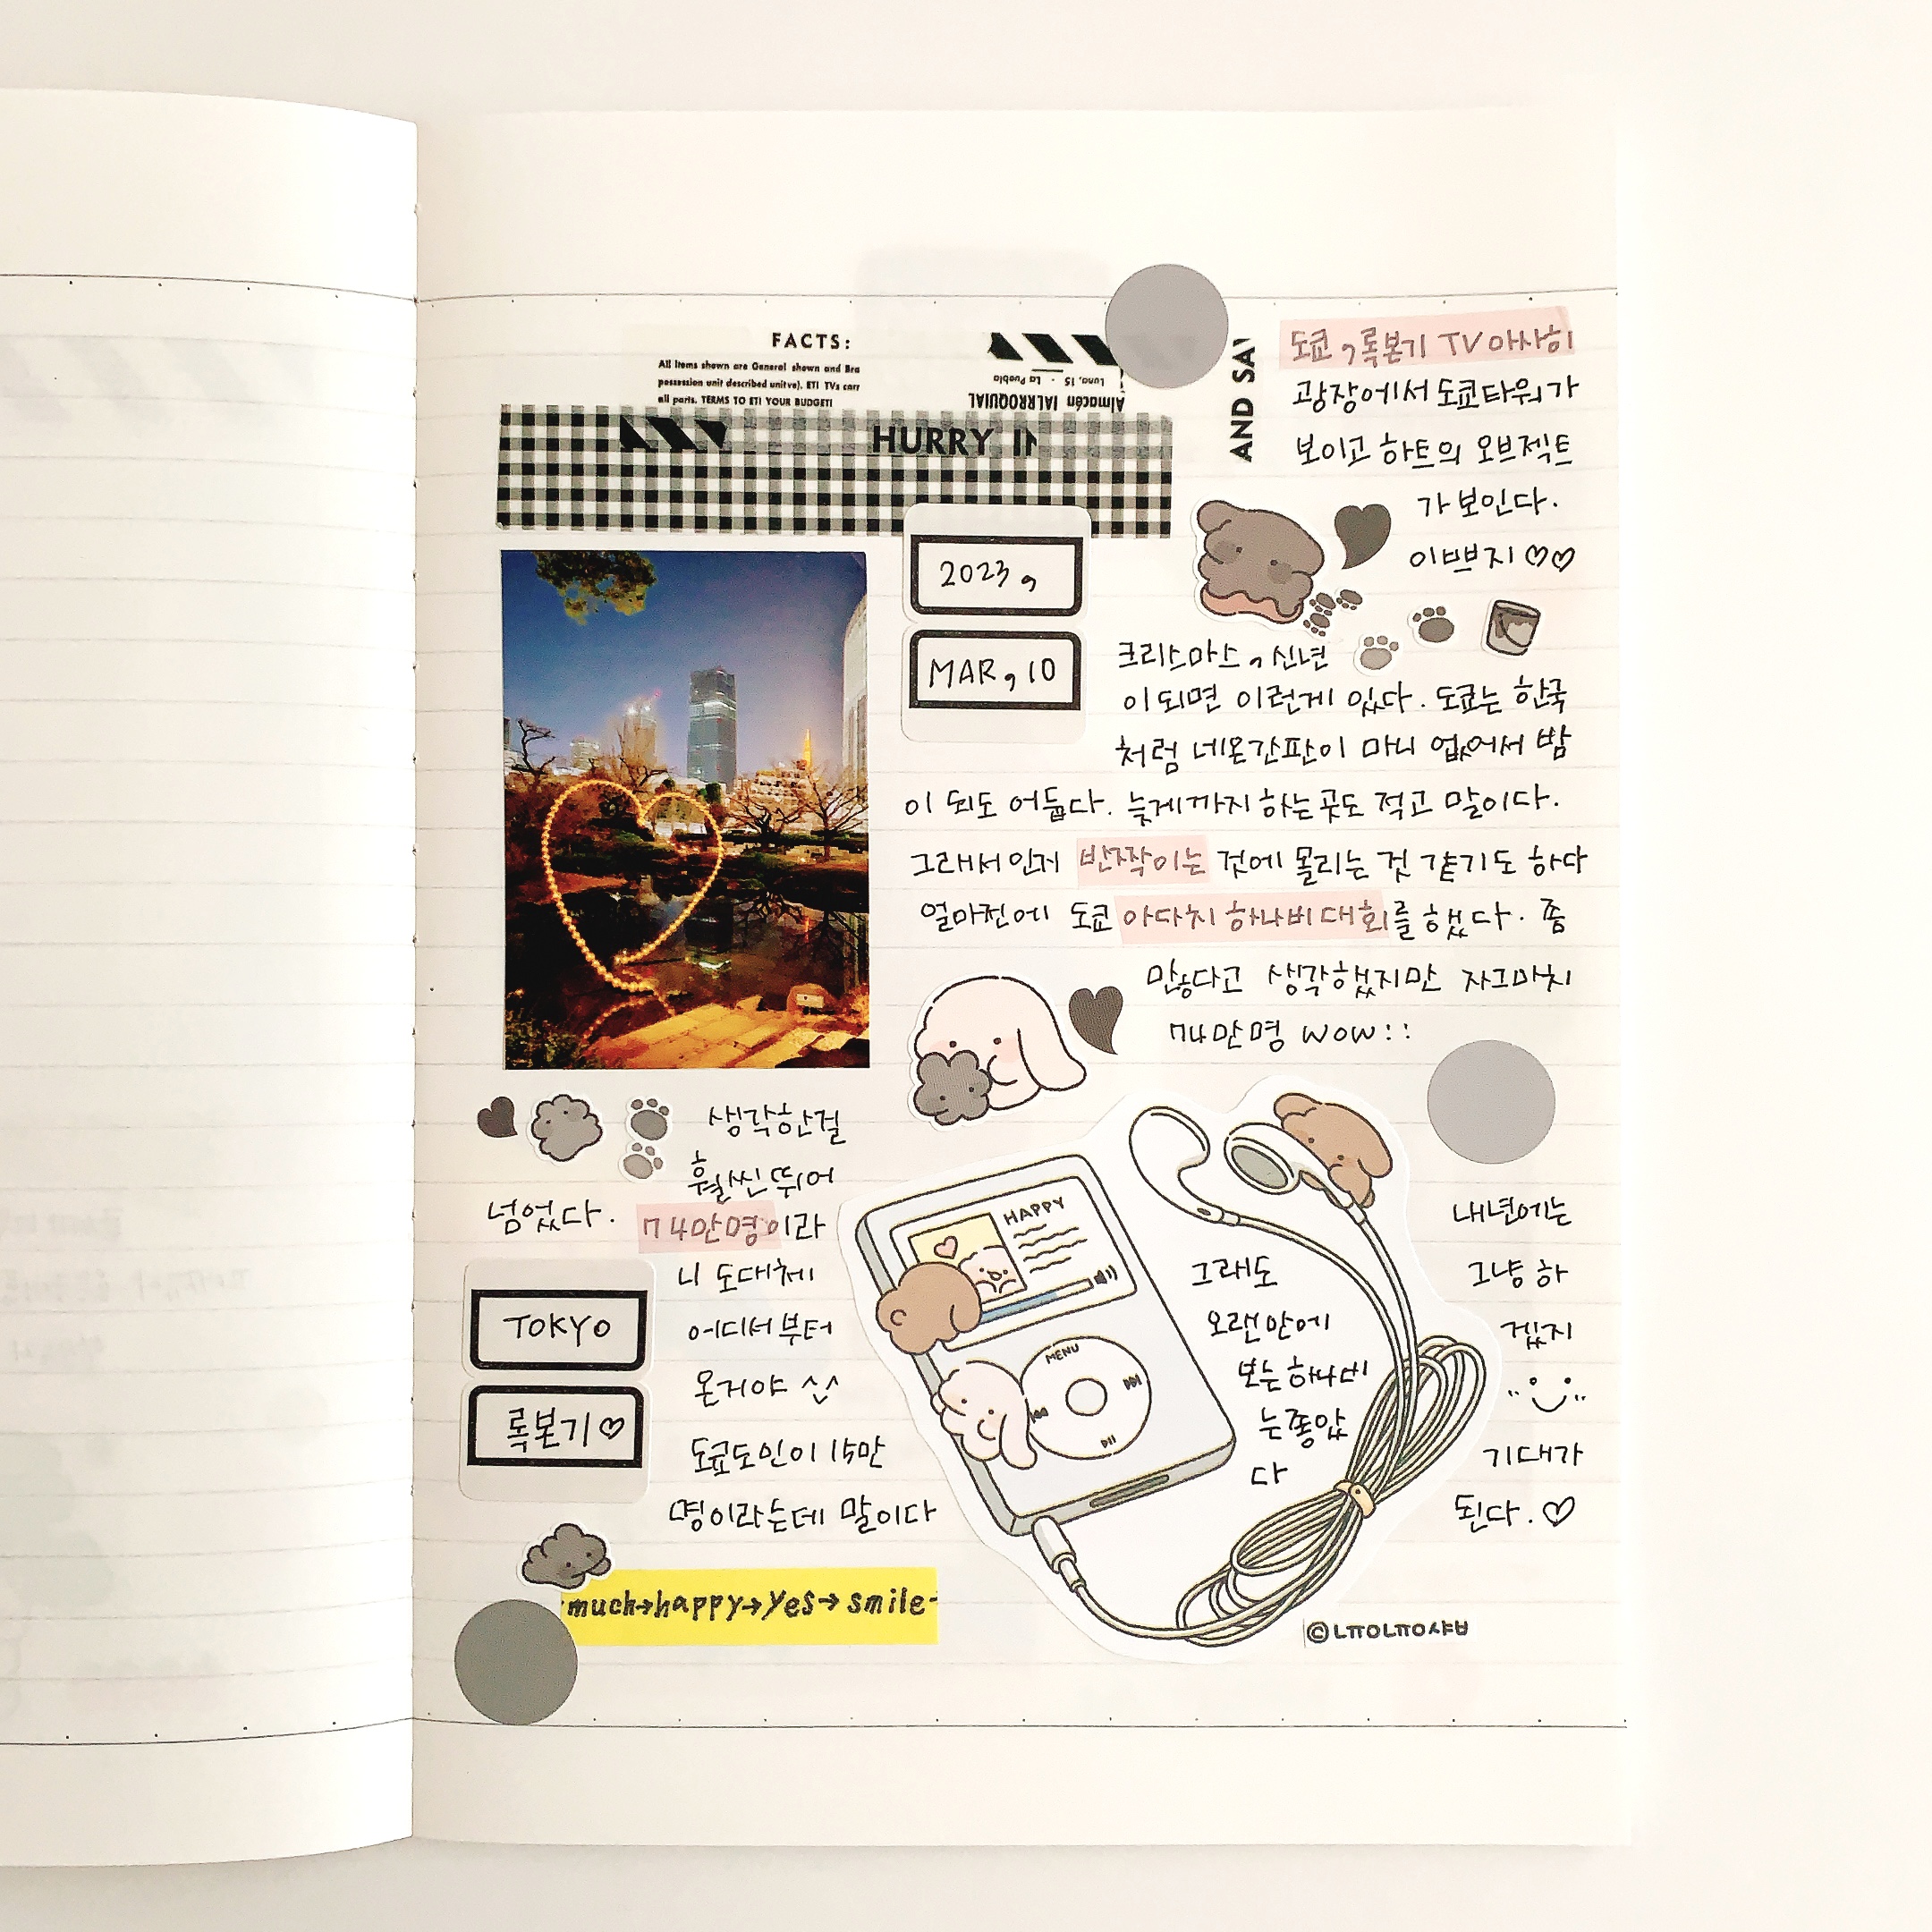 FACTS:
All Items shown are General shown and Bra
possession unit described unitve). ETI TVs carr
all parts. TERMS TO ETI YOUR BUDGETI
Luna, 15. - La Puebla
Almacén IALRROQUIAL
HURRY IN
AND SA
도쿄, 록본기 TV 아사히
광장에서 도쿄타워가
보이고 하트의 오브젝트
가 보인다.
이쁘지 ♡♡
2023,
MAR, 10
크리스마스, 신년
이 되면 이런게 있다. 도쿄는 한국
처럼 네온간판이 마니 없어서 밤
이 되도 어둡다. 늦게까지 하는곳도 적고 말이다.
그래서인지 반짝이는 것에 몰리는 것 같기도 하다
얼마전에 도쿄 아다치 하나비대회를 했다. 좀
만놓다고 생각했지만 자그마치
74만명 wow::
생각한걸
훨씬 뛰어
넘었다. 74만명이라
니 도대체
어디서부터
온거야 ^^
도쿄도인이 15만
명이라는데 말이다
TOKYO
록본기♡
HAPPY
MENU
그래도
오랜만에
보는하나비
는좋았
다
내년에는
그냥 하
겠지
기대가
된다. ♡
much→happy→yes→smile-
©LㅠOLㅠO샤ㅂ